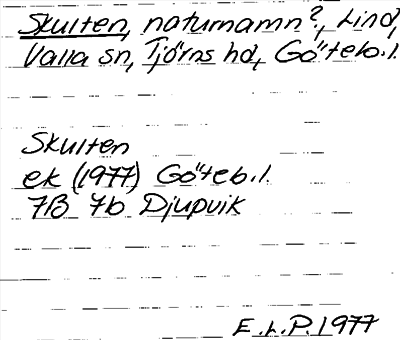 Skulten, naturnamn?, Lind,
Valla sn, Tjörns hd, Göteb.l.
Skulten
ek (1977) Göteb.l.
7B 7b Djupvik
E.L.P. 1977